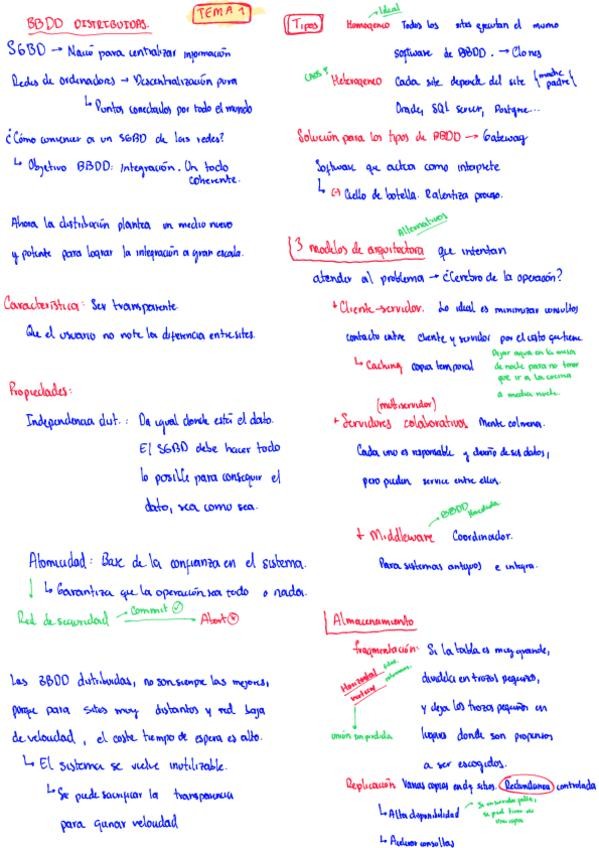 TEMA 1
BBDD DISTRIBUIDAS.
SGBD → Nació para centralizar información
Redes de ordenadores → Descentralización pura
↳ Puntos conectados por todo el mundo
¿Cómo convencer a un SGBD de las redes?
↳ Objetivo BBDD: Integración. Un todo
coherente.
Ahora la distribución plantea un medio nuevo
y potente para lograr la integración a gran escala.
Característica: Ser transparente.
Que el usuario no note la diferencia entre sites.
Propiedades:
Independencia dist.: Da igual donde esté el dato.
El SGBD debe hacer todo
lo posible para conseguir el
dato, sea como sea.
Atomicidad: Base de la confianza en el sistema.
↳ Garantiza que la operación sea todo o nada.
Red de seguridad
Commit
Abort
Las BBDD distribuidas, no son siempre las mejores,
porque para sites muy distantes y red baja
de velocidad, el coste tiempo de espera es alto.
↳ El sistema se vuelve inutilizable.
↳ Se puede sacrificar la transparencia
para ganar velocidad
Tipos
Ideal
Homogéneo Todos los sites ejecutan el mismo
software de BBDD. → Clones
Heterogéneo Cada site depende del site
madre
padre
Oracle, SQL server, Postgre...
Solución para los tipos de BBDD → Gateway
Software que actúa como interprete
↳ (-) Cuello de botella. Ralentiza proceso.
Alternativos
3 modelos de arquitectura que intentan
atender al problema → ¿Cerebro de la operación?
+ Cliente-servidor. Lo ideal es minimizar consultas
contacto entre cliente y servidor por el costo que tiene
↳ Caching copia temporal
Dejar agua en la mesa
de noche para no tener
que ir a la cocina
a media noche.
(multiservidor)
+ Servidores colaborativos Mente colmena.
Cada uno es responsable y dueño de sus datos,
pero pueden service entre ellos.
BBDD
+ Middleware Coordinador.
Para sistemas antiguos e integra.
Almacenamiento
fragmentación: Si la tabla es muy grande,
divídela en trozos pequeños,
y deja los trozos pequeños en
lugares donde son propensos
a ser escogidos.
Horizontal
vertical
unión sin perdida
Replicación Varias copias en dif sites. Redundancia controlada
↳ Alta disponibilidad
Si un servidor falla,
se puede tirar de
una copia
↳ Acelerar consultas